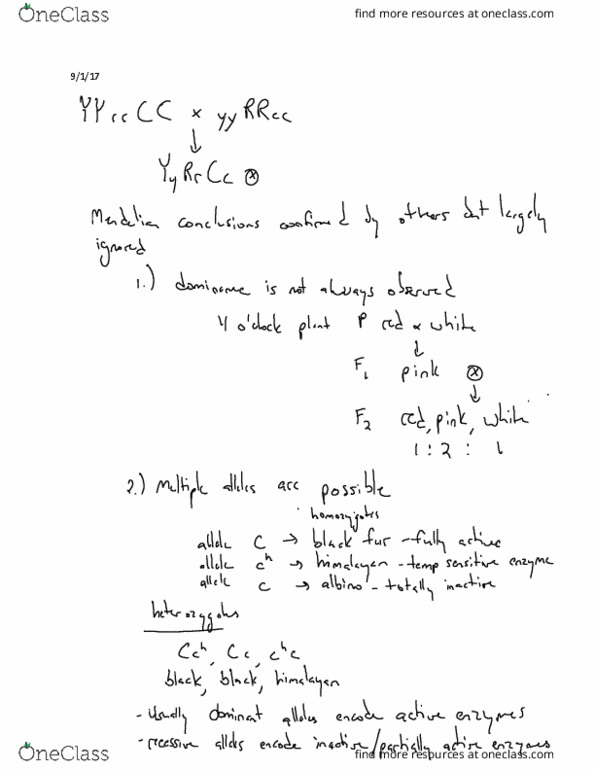 OneClass
find more resources at oneclass.com
9/1/17
YYrrCC x yyRRcc
↓
YyRrCc ⊗
Mendelian conclusions confirmed by others but largely
ignored
1.) dominance is not always observed
4 o'clock plant P red x white
↓
F1 pink ⊗
↓
F2 red, pink, white
1 : 2 : 1
2.) Multiple alleles are possible
homozygotes
allele C → black fur - fully active
allele c^h → himalayan - temp sensitive enzyme
allele c → albino - totally inactive
heterozygotes
Cc^h, Cc, c^hc
black, black, himalayan
- Usually dominant alleles encode active enzymes
- recessive alleles encode inactive/partially active enzymes
OneClass
find more resources at oneclass.com